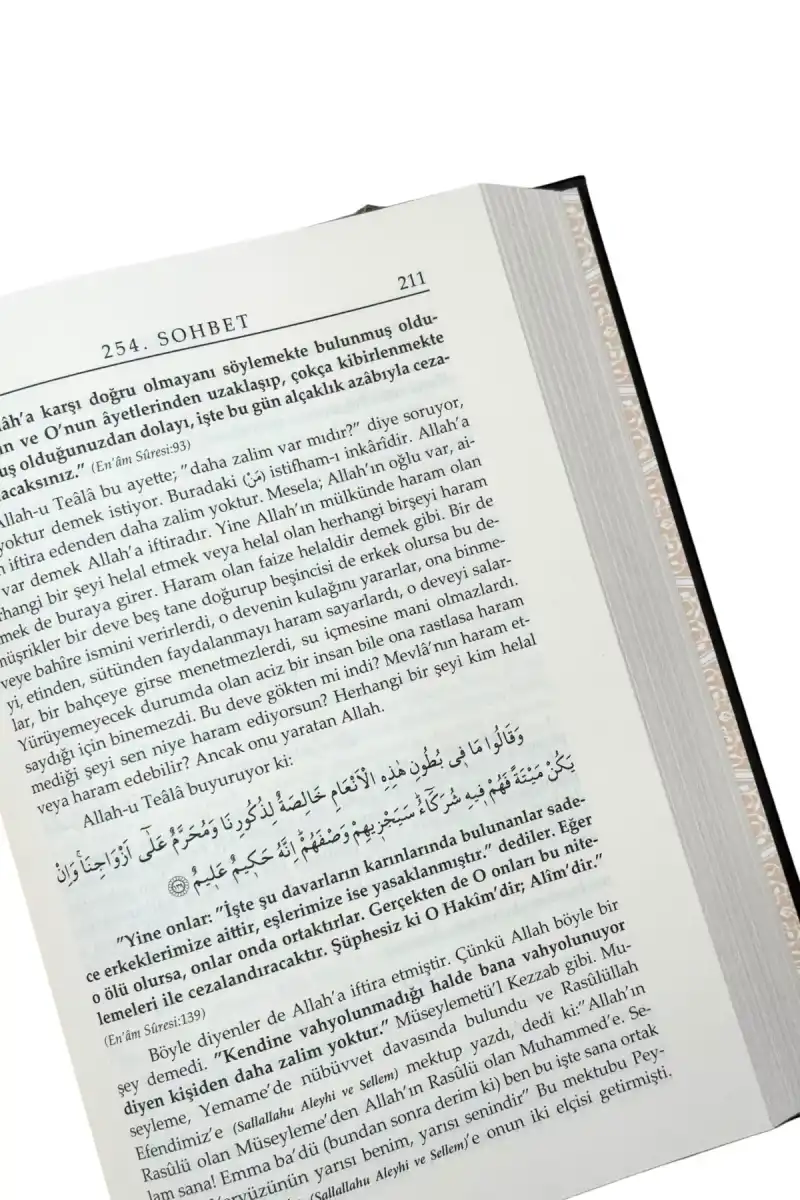 254. SOHBET
211
lâh'a karşı doğru olmayanı söylemekte bulunmuş oldu-
ın ve O'nun âyetlerinden uzaklaşıp, çokça kibirlenmekte
uş olduğunuzdan dolayı, işte bu gün alçaklık azâbıyla ceza-
acaksınız." (En'âm Sûresi:93)
Allah-u Teâlâ bu ayette; "daha zalim var mıdır?" diye soruyor,
yoktur demek istiyor. Buradaki (مَنْ) istifham-ı inkârîdir. Allah'a
iftira edenden daha zalim yoktur. Mesela; Allah'ın oğlu var, ai-
var demek Allah'a iftiradır. Yine Allah'ın mülkünde haram olan
rhangi bir şeyi helal etmek veya helal olan herhangi birşeyi haram
mek de buraya girer. Haram olan faize helaldir demek gibi. Bir de
müşrikler bir deve beş tane doğurup beşincisi de erkek olursa bu de-
veye bahîre ismini verirlerdi, o devenin kulağını yararlar, ona binme-
yi, etinden, sütünden faydalanmayı haram sayarlardı, o deveyi salar-
lar, bir bahçeye girse menetmezlerdi, su içmesine mani olmazlardı.
Yürüyemeyecek durumda olan aciz bir insan bile ona rastlasa haram
saydığı için binemezdi. Bu deve gökten mi indi? Mevlâ'nın haram et-
mediği şeyi sen niye haram ediyorsun? Herhangi bir şeyi kim helal
veya haram edebilir? Ancak onu yaratan Allah.
Allah-u Teâlâ buyuruyor ki:
وَقَالُوا مَا فِى بُطُونِ هٰذِهِ الْاَنْعَامِ خَالِصَةٌ لِذُكُورِنَا وَمُحَرَّمٌ عَلٰٓى اَزْوَاجِنَاۚ وَاِنْ
يَكُنْ مَيْتَةً فَهُمْ فِيهِ شُرَكَٓاءُۜ سَيَجْزِيهِمْ وَصْفَهُمْۜ اِنَّهُ حَكِيمٌ عَلِيمٌ ﴿١٣٩﴾
"Yine onlar: "İşte şu davarların karınlarında bulunanlar sade-
ce erkeklerimize aittir, eşlerimize ise yasaklanmıştır." dediler. Eğer
o ölü olursa, onlar onda ortaktırlar. Gerçekten de O onları bu nite-
lemeleri ile cezalandıracaktır. Şüphesiz ki O Hakîm'dir; Alîm'dir."
(En'âm Sûresi:139)
Böyle diyenler de Allah'a iftira etmiştir. Çünkü Allah böyle bir
şey demedi. "Kendine vahyolunmadığı halde bana vahyolunuyor
diyen kişiden daha zalim yoktur." Müseylemetü'l Kezzab gibi. Mü-
seyleme, Yemame'de nübüvvet davasında bulundu ve Rasûlüllah
Efendimiz'e (Sallallahu Aleyhi ve Sellem) mektup yazdı, dedi ki:" Allah'ın
Rasûlü olan Müseyleme'den Allah'ın Rasûlü olan Muhammed'e. Se-
lam sana! Emma ba'dü (bundan sonra derim ki) ben bu işte sana ortak
yeryüzünün yarısı benim, yarısı senindir" Bu mektubu Pey-
(Sallallahu Aleyhi ve Sellem)'e onun iki elçisi getirmişti.